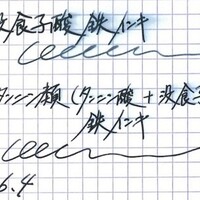 没食子酸 鉄インキ
タンニン類 (タンニン酸 + 没食子
鉄インキ
6.4